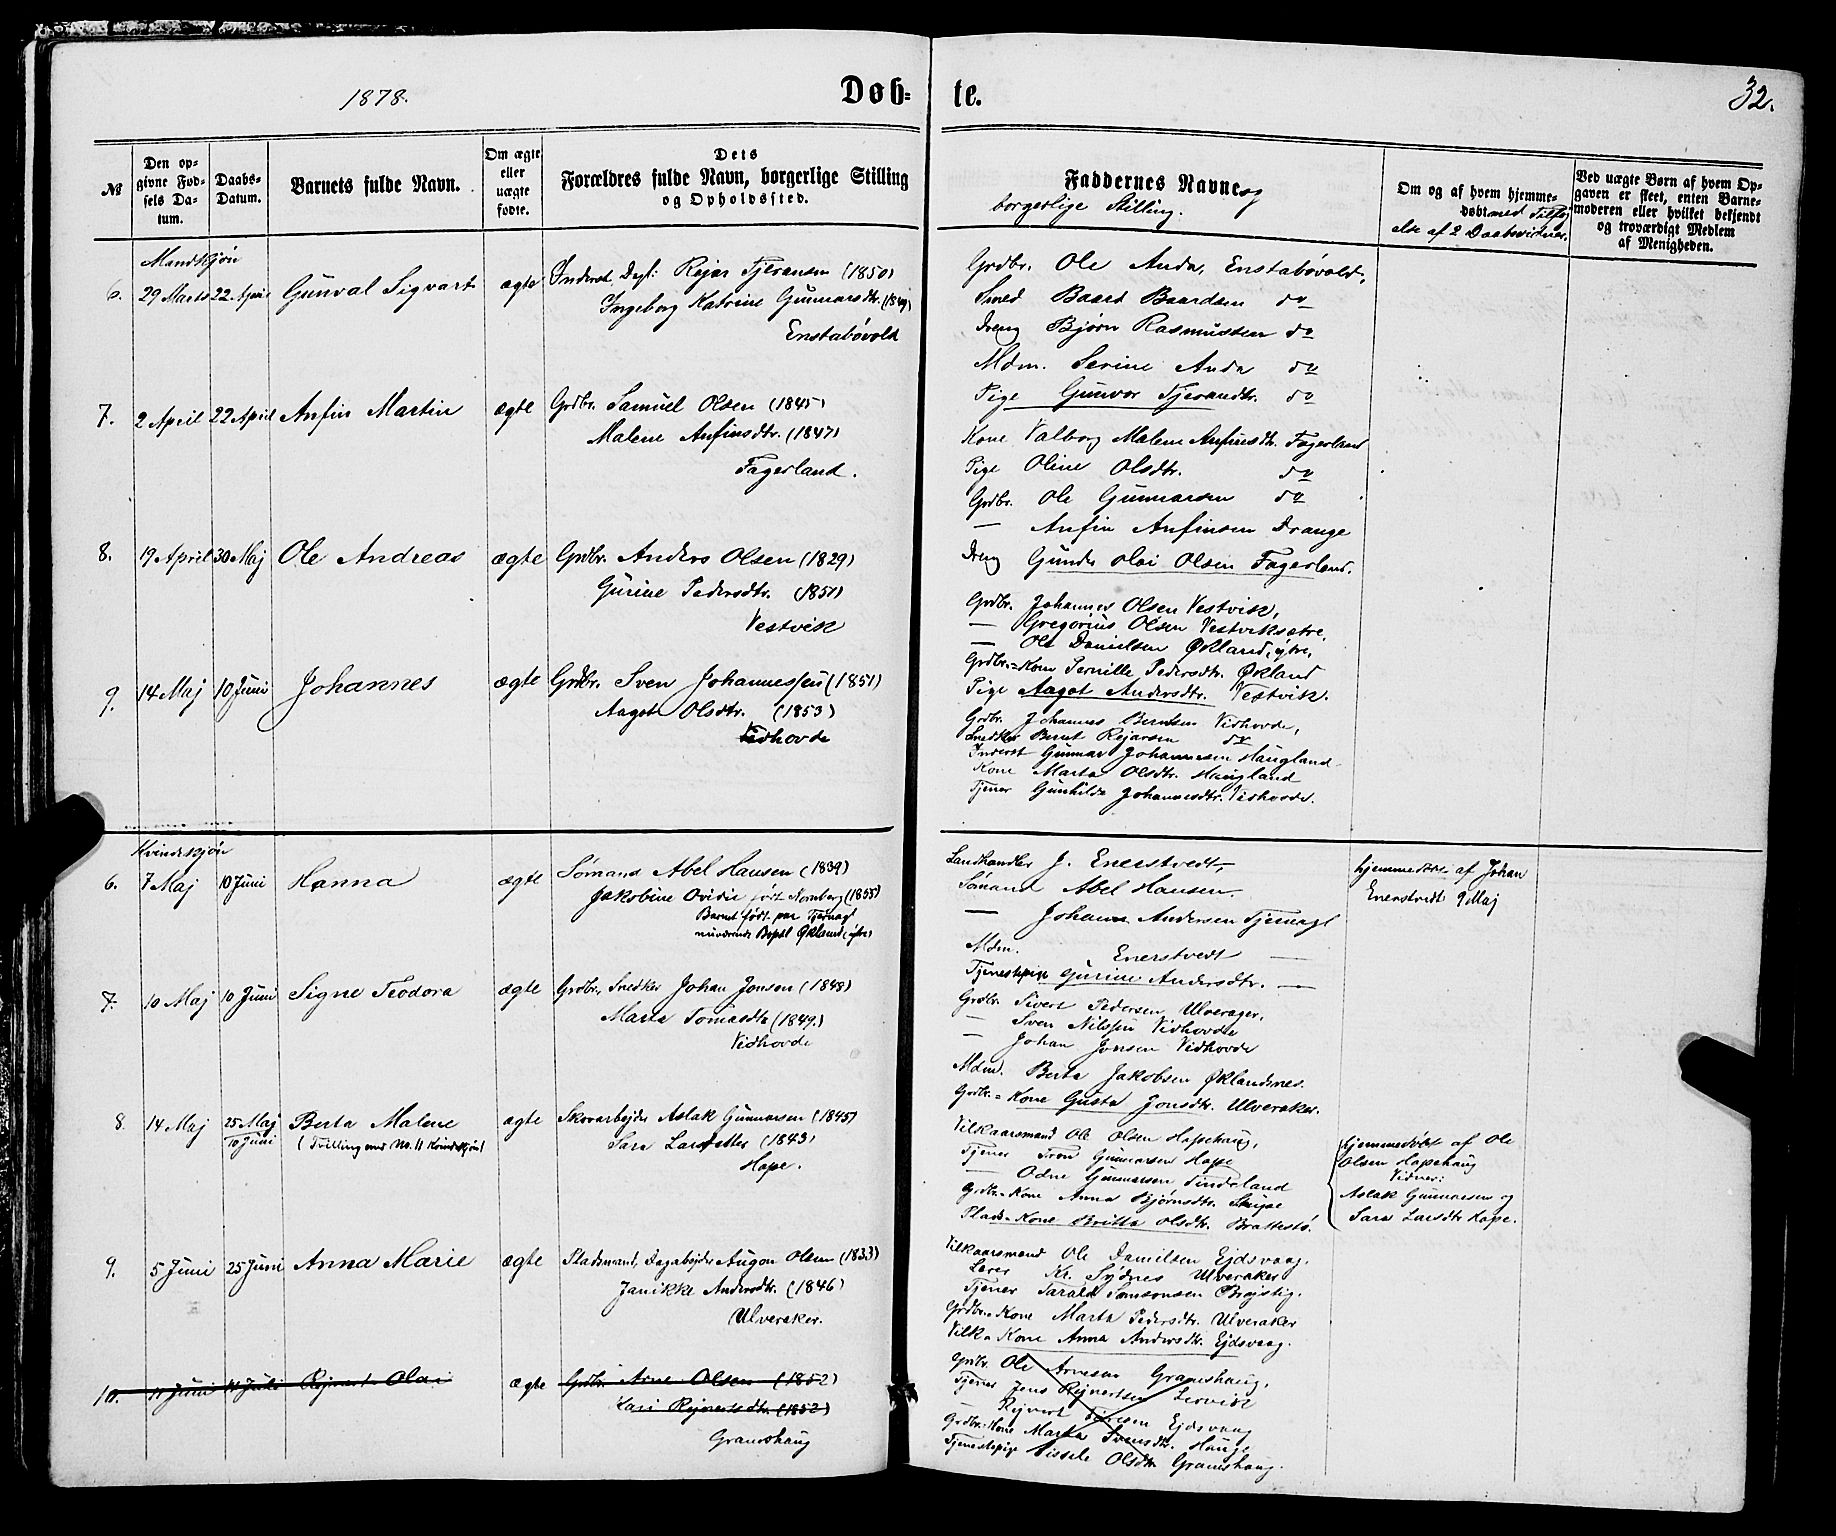 1878.
Døb-
te.
32.
№
Den op-
givne Fød-
sels Da-
tum.
Daabs-
Datum.
Barnets fulde Navn.
Om ægte
eller
uægte
fødte.
Dets
Forældres fulde Navn, borgerlige Stilling
og Opholdssted.
Faddernes Navne og
borgerlige Stilling.
Om og af hvem hjemme-
døbt med Tilføj
else af 2 Daabsvidner.
Ved uægte Børn af hvem Op-
gaven er skeet, enten Barne-
moderen eller hvilket bekjendt
og troværdigt Medlem
af Menigheden.
Mandkjøn
6. 29 Marts 22 April Gunval Sigvart ægte Inderst, Dagl: Rejar Tjeransen (1850)
Ingeborg Katrine Gunnarsdtr. (1849)
Enstabøvold
Grdbr. Ole Anda, Enstabøvold,
Smed Baard Baardsen do
Dreng Bjørn Rasmussen do
Mdm. Serine Anda do
Pige Gunvor Tjerandtr. do
7. 2 April 22 April Anfin Martin ægte Grdbr. Samuel Olsen (1845)
Malene Anfinsdtr. (1847)
Fagerland.
Kone Valborg Malene Anfinsdtr. Fagerland
Pige Oline Olsdtr. do
Grdbr. Ole Gunnarsen do
— Anfin Anfinsen Drange
Dreng Gunder Olai Olsen Fagerland.
8. 19 April 30 Maj Ole Andreas ægte Grdbr. Anders Olsen (1829)
Gurine Pedersdtr. (1851)
Vestvik
Grdbr. Johannes Olsen Vestvik,
— Gregorius Olsen Vestviksætre,
— Ole Danielsen Økland, ytre,
Grdbr.=Kone Pernille Pedersdtr. Økland
Pige Aagot Andersdtr. Vestvik.
9. 14 Maj 10 Juni Johannes ægte Grdbr. Sven Johannessen (1851)
Aagot Olsdtr. (1853)
Vidhovde
Grdbr. Johannes Berntsen Vidhovde,
Snedker Bernt Rejarsen do
Inderst Gunnar Johannesen Haugland
Kone Marta Olsdtr. Haugland
Tjener Gunhilda Johannesdtr. Vidhovde.
Kvindekjøn
6. 7 Maj 10 Juni Hanna ægte Sømand Abel Hansen (1839)
Jakobine Ovidie født Nornberg (1855)
Barnet født paa Tjernagl
nuværende Bopæl Økland (ytre)
Landhandler J. Enerstvedt,
Sømand Abel Hansen
— Johan Andersen Tjernagl
Mdm. Enerstvedt —
Tjenestepige Gurine Andersdtr. —
hjemmedøbt af Johan
Enerstvedt 9 Maj
7. 10 Maj 10 Juni Signe Teodora ægte Grdbr., Snedker Johan Jonsen (1848)
Marta Tomasdtr (1849.)
Vidhovde
Grdbr. Sivert Pedersen Ulverager,
— Sven Nilssen Vidhovde
— Johan Jonsen Vidhovde
Mdm. Berta Jakobsen Øklandsnes.
Grdbr.=Kone Gusta Jonsdtr. Ulveraker.
8. 14 Maj 25 Maj
10 Juni Berta Malene
(Tvilling med No. 11 Kvindekjøn) ægte Skovarbejder Aslak Gunnarsen (1845)
Sara Larsdatter (1843)
Hope.
Vilkaarsmand Ole Olsen Hopehaug,
Tjener Tron Gunnarsen Hope
— Odne Gunnarsen Tindeland
Grdbr.=Kone Anna Bjørnsdtr.
Plads-Kone Britta Olsdtr. Brattestø.
hjemmedøbt af Ole
Olsen Hopehaug
Vidner:
Aslak Gunnarsen og
Sara Larsdtr Hope.
9. 5 Juni 25 Juni Anna Marie ægte Pladsmand, Dagarbejder Augon Olsen (1833)
Janikke Andersdtr. (1846)
Ulveraker.
Vilkaarsmand Ole Danielsen Ejdsvaag,
Lærer Kr. Sydnes Ulveraker
Tjener Tarald Samsonsen
Grdbr.=Kone Marta Pedersdtr. Ulveraker
Vilk.=Kone Anna Andersdtr. Ejdsvaag.
10. 11 Juni Juli Rejnert Olai ægte Grdbr. Arne Olsen (1852)
Kari Rejnertsdtr. (1852)
Graneshaug
Grdbr. Ole Arnesen Graneshaug,
Tjener Jens Rejnertsen Lervik
Rejnert Ejdsvaag
Grdbr.=Kone Marta Svensdtr. Hauge
Tjenestepige Sissele Olsdtr Graneshaug.